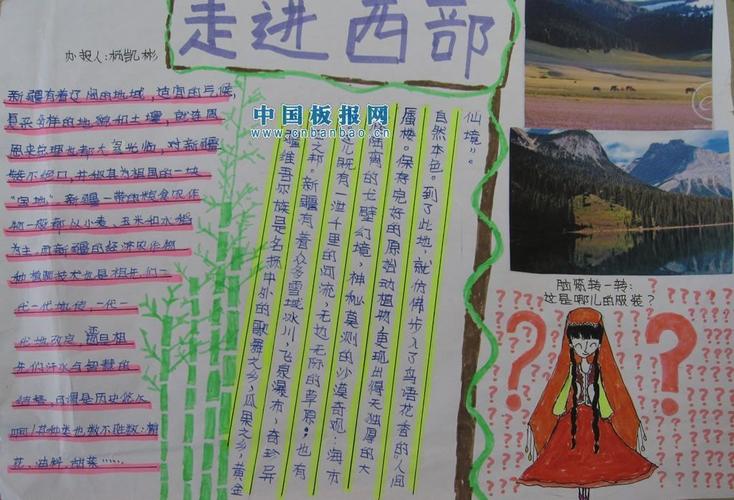 走进西部
办报人:杨凯彬
中国板报网
www.cnbanbao.cn
新疆有着辽阔的地域,适宜的气候,
复杂多样的地貌和土壤,就连周
恩来总理也都大驾光临,对新疆
赞不绝口,并称其为祖国的一块
"宝地"。新疆一带的粮食农作
物一般都以小麦、玉米和水稻
为主,而新疆的经济农作物
种植技术也是祖先们一
代一代地传,一代一
代地改定,
先们汗水与智慧的
结晶,可谓是历史悠久
啊!其种类也数不胜数:棉
花、油籽、甜菜……
疆维吾尔族是名扬中外的歌舞之乡,瓜果之乡,黄金
之邦。新疆有着众多雪域冰川,飞泉瀑布,奇珍异
既有一泄千里的河流,无边无际的草原;也有
陆离的戈壁幻境,神秘莫测的沙漠奇观:海市
蜃楼。保存完好的原始动植物,更现出得天独厚的大
自然本色。到了此地,就仿佛步入了鸟语花香的"人间
仙境"。
脑筋转一转:
这是哪儿的服装?